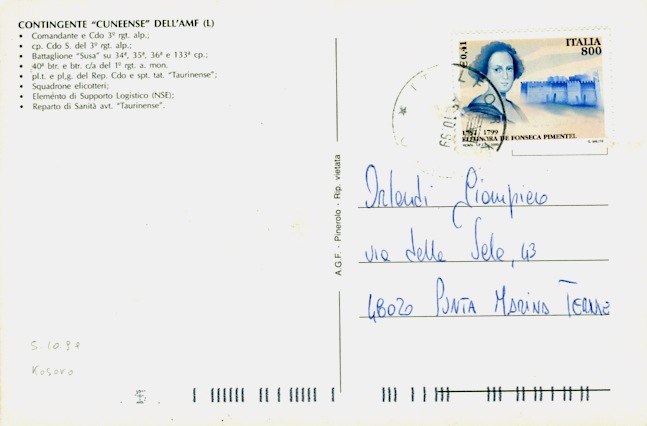 CONTINGENTE "CUNEENSE" DELL'AMF (L)
• Comandante e Cdo 3º rgt. alp.;
• cp. Cdo S. del 3º rgt. alp.;
• Battaglione "Susa" su 34ª, 35ª, 36ª e 133ª cp.;
• 40ª btr. e btr. c/a del 1º rgt. a. mon.
• pl.t. e pl,g. del Rep. Cdo e spt. tat. "Taurinense";
• Squadrone elicotteri;
• Elemento di Supporto Logistico (NSE);
• Reparto di Sanità avt. "Taurinense".
ITALIA
800
€ 0,41
1799
ELEONORA DE FONSECA PIMENTEL
A.G.F. - Pinerolo - Rip. vietata
Orlandi Giampiero
via delle Sele, 43
48020 PUNTA MARINA TERME
Kosovo